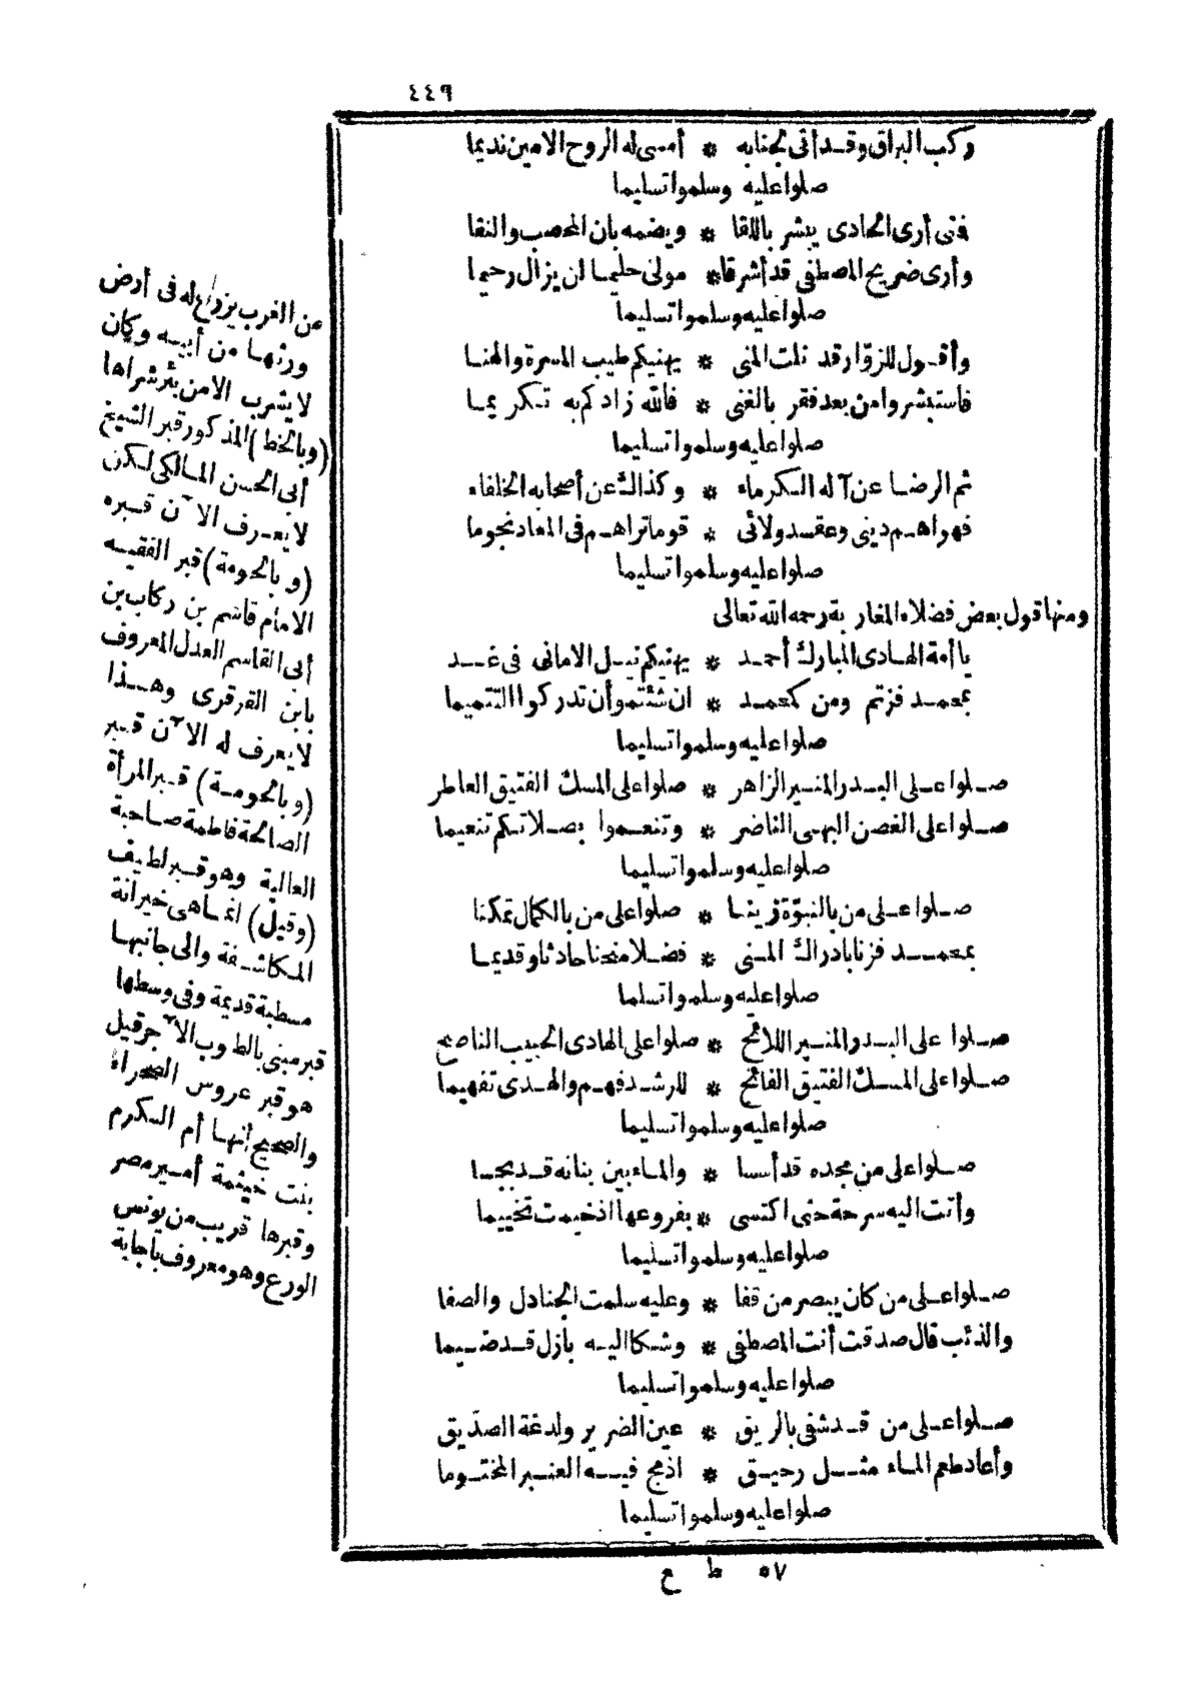 ٤٤٩
ركب البراق وقد أتى لجنابه * أمسى له الروح الامين نديما
صلوا عليه وسلموا تسليما
فتى أرى الحادى يبشر باللقا * ويضمه بان المحصب والنقا
وأرى ضريح المصطفى قد أشرقا * مولى حليما ان يزال رحيما
صلوا عليه وسلموا تسليما
وأقول للزوّار قد نلت المنى * يهنيكم طيب المسرة والهنا
فاستبشروا من بعد فقر بالغنى * فالله زادكم به تكريما
صلوا عليه وسلموا تسليما
ثم الرضا عن آله الكرماء * وكذاك عن أصحابه الخلفاء
فهواهم دينى وعقد ولائى * قوما تراهم فى المعاد نجوما
صلوا عليه وسلموا تسليما
ومنها قول بعض فضلاء المغاربة رحمه الله تعالى
يا أمة الهادى المبارك أحمد * يهنيكم نيل الامانى فى غد
بمحمد فزتم ومن كمحمد * ان شئتمو أن تدركوا التتميما
صلوا عليه وسلموا تسليما
صلوا على البدر المنير الزاهر * صلوا على المسك الفتيق العاطر
صلوا على الغصن البهى الناضر * وتنعموا بصلاتكم تنعيما
صلوا عليه وسلموا تسليما
صلوا على من بالنبوّة زينا * صلوا على من بالكمال تمكنا
بمحمد فزنا بادراك المنى * فضلا منحنا حادثا وقديما
صلوا عليه وسلموا تسلما
صلوا على البدر المنير اللائح * صلوا على الهادى الحبيب الناصح
صلوا على المسك الفتيق الفائح * للرشد فهم والهدى تفهيما
صلوا عليه وسلموا تسليما
صلوا على من مجده قد أسسا * والماء بين بنانه قد بجسا
وأتت اليه سرحة حتى اكتسى * بفروعها اذ خيمت تخييما
صلوا عليه وسلموا تسليما
صلوا على من كان يبصر من قفا * وعليه سلمت الجنادل والصفا
والذئب قال صدقت أنت المصطفى * وشكا اليه بازل قد ضيما
صلوا عليه وسلموا تسليما
صلوا على من قد شفى بالريق * عين الضرير ولدغة الصدّيق
وأعاد طعم الماء مثل رحيق * اذ مج فيه العنبر المختوما
صلوا عليه وسلموا تسليما
٥٧ ط ع
من الغرب يزداع له فى أرض
ورثها من أبيه وكان
لا يشرب الا من بئر شراها
(وبالخط) المذكور قبر الشيخ
أبى الحسن المالكى لكن
لا يعرف الآن قبره
(وبالحومة) قبر الفقيه
الامام قاسم بن ركاب بن
أبى القاسم العدل المعروف
بابن القرقرى وهذا
لا يعرف له الآن قبر
(وبالحومة) قبر المرأة
الصالحة فاطمة صاحبة
العالية وهو قبر لطيف
(وقيل) انما هى خيرانة
المكاشفة والى جانبها
مسطبة قديمة وفى وسطها
قبر مبنى بالطوب الآجر قيل
هو قبر عروس الصحراء
والصحيح انها أم الكرم
بنت خيثمة أمير مصر
وقبرها قريب من يونس
الورع وهو معروف باجابة